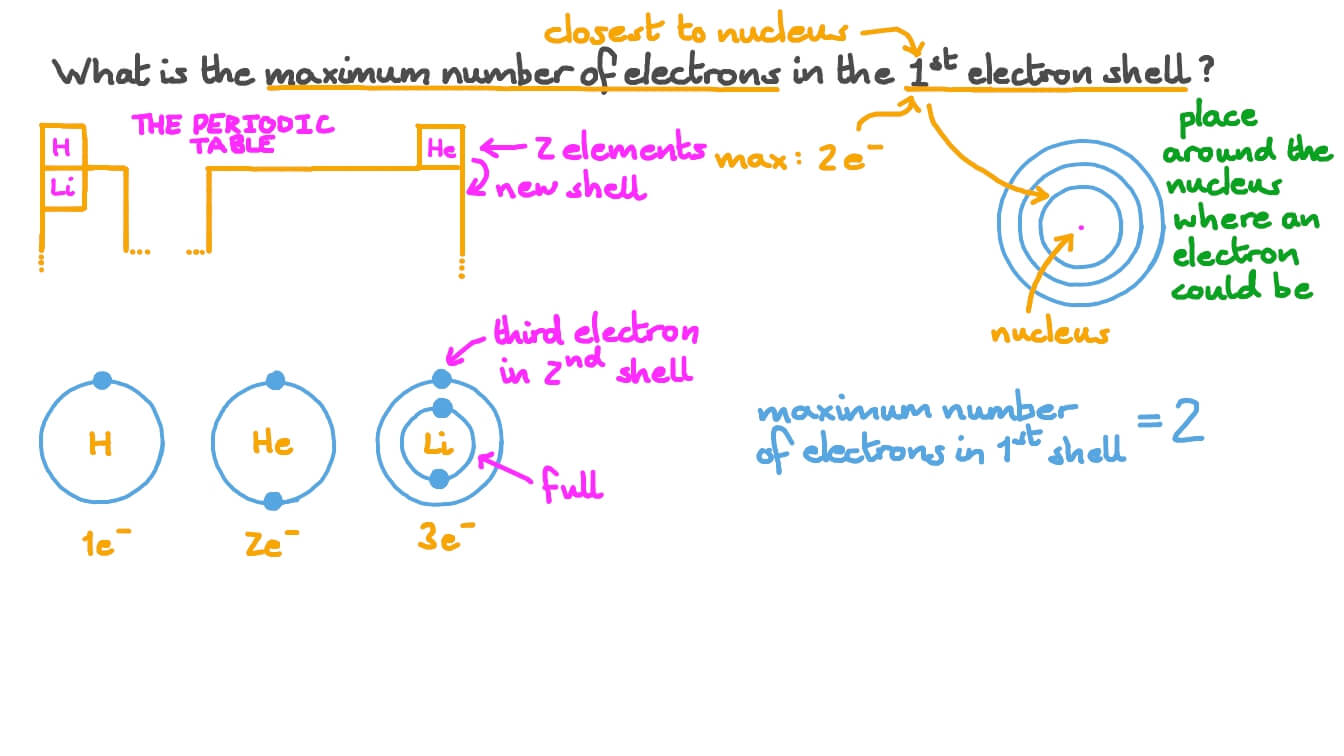 closest to nucleus
What is the maximum number of electrons in the 1st electron shell?
THE PERIODIC
TABLE
H
He
Li
2 elements
new shell
max: 2e⁻
place
around the
nucleus
where an
electron
could be
nucleus
third electron
in 2nd shell
H
He
Li
full
1e⁻
2e⁻
3e⁻
maximum number
of electrons in 1st shell
= 2